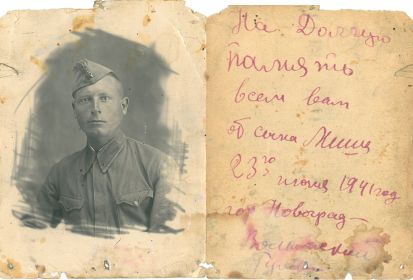 На Долгую
Память
всем вам
от сына Миши
23го июня 1941 год
гор Новоград-
Волынский